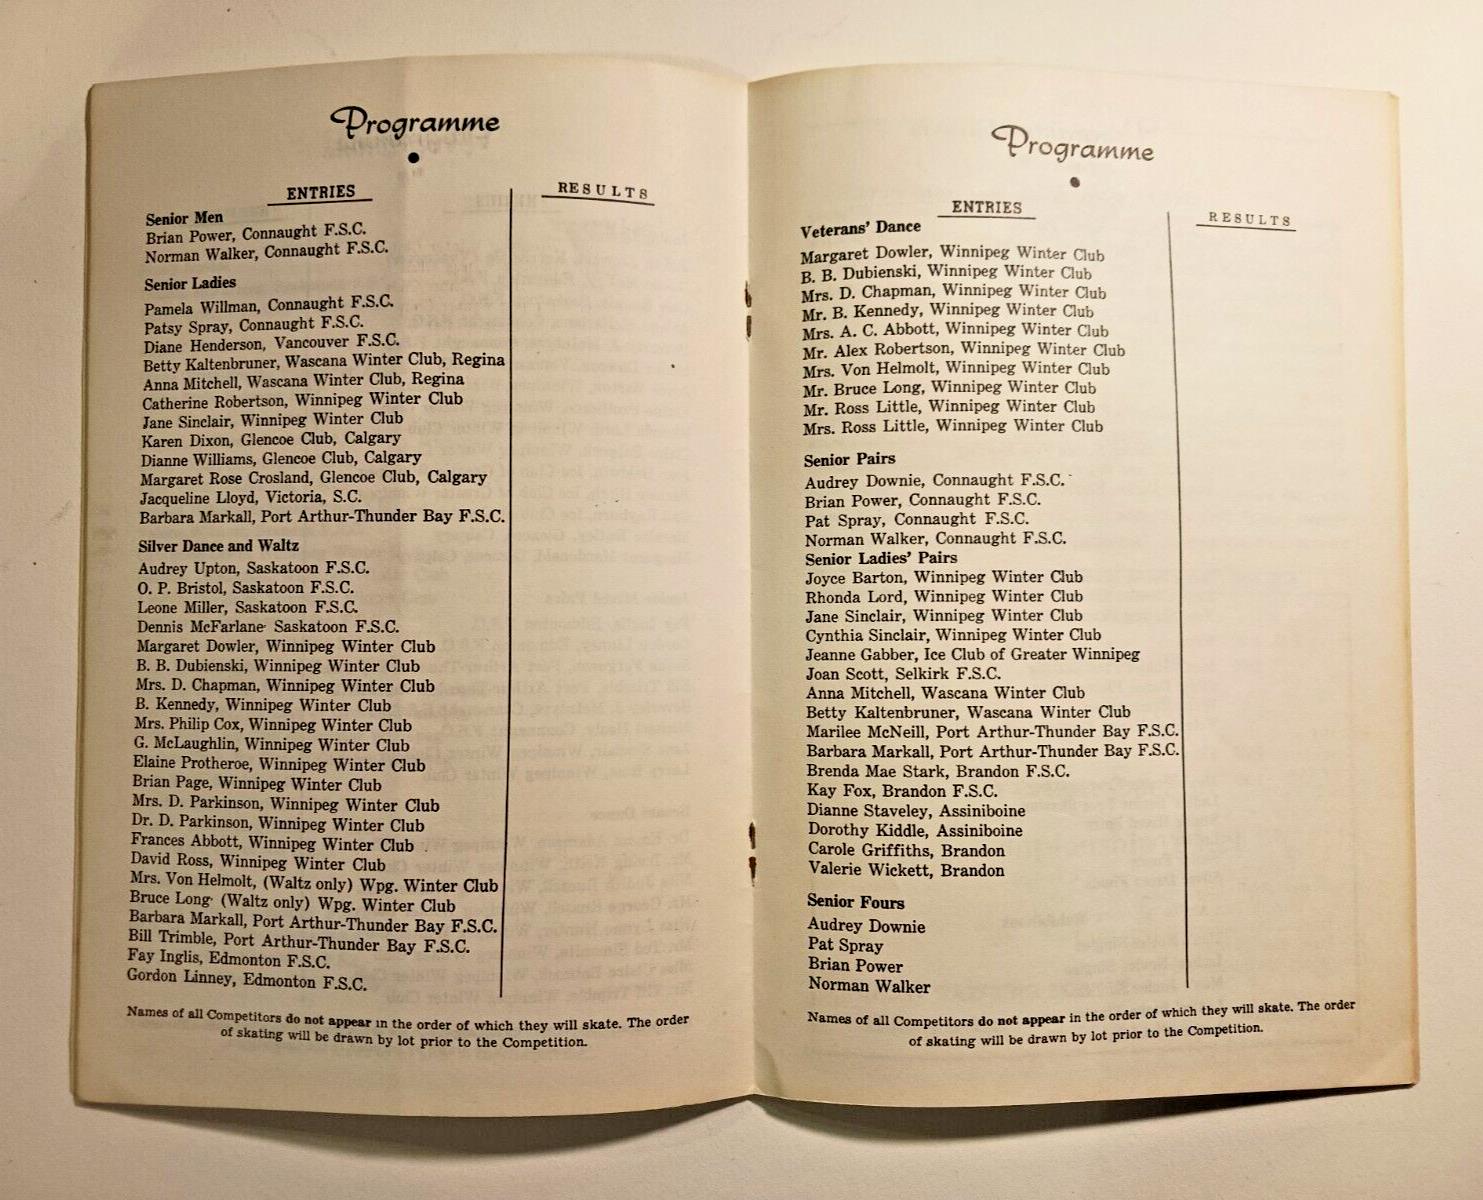 Programme
ENTRIES
RESULTS
Senior Men
Brian Power, Connaught F.S.C.
Norman Walker, Connaught F.S.C.
Senior Ladies
Pamela Willman, Connaught F.S.C.
Patsy Spray, Connaught F.S.C.
Diane Henderson, Vancouver F.S.C.
Betty Kaltenbruner, Wascana Winter Club, Regina
Anna Mitchell, Wascana Winter Club, Regina
Catherine Robertson, Winnipeg Winter Club
Jane Sinclair, Winnipeg Winter Club
Karen Dixon, Glencoe Club, Calgary
Dianne Williams, Glencoe Club, Calgary
Margaret Rose Crosland, Glencoe Club, Calgary
Jacqueline Lloyd, Victoria, S.C.
Barbara Markall, Port Arthur-Thunder Bay F.S.C.
Silver Dance and Waltz
Audrey Upton, Saskatoon F.S.C.
O. P. Bristol, Saskatoon F.S.C.
Leone Miller, Saskatoon F.S.C.
Dennis McFarlane Saskatoon F.S.C.
Margaret Dowler, Winnipeg Winter Club
B. B. Dubienski, Winnipeg Winter Club
Mrs. D. Chapman, Winnipeg Winter Club
B. Kennedy, Winnipeg Winter Club
Mrs. Philip Cox, Winnipeg Winter Club
G. McLaughlin, Winnipeg Winter Club
Elaine Protheroe, Winnipeg Winter Club
Brian Page, Winnipeg Winter Club
Mrs. D. Parkinson, Winnipeg Winter Club
Dr. D. Parkinson, Winnipeg Winter Club
Frances Abbott, Winnipeg Winter Club
David Ross, Winnipeg Winter Club
Mrs. Von Helmolt, (Waltz only) Wpg. Winter Club
Bruce Long (Waltz only) Wpg. Winter Club
Barbara Markall, Port Arthur-Thunder Bay F.S.C.
Bill Trimble, Port Arthur-Thunder Bay F.S.C.
Fay Inglis, Edmonton F.S.C.
Gordon Linney, Edmonton F.S.C.
Names of all Competitors do not appear in the order of which they will skate. The order
of skating will be drawn by lot prior to the Competition.
Programme
ENTRIES
RESULTS
Veterans' Dance
Margaret Dowler, Winnipeg Winter Club
B. B. Dubienski, Winnipeg Winter Club
Mrs. D. Chapman, Winnipeg Winter Club
Mr. B. Kennedy, Winnipeg Winter Club
Mrs. A. C. Abbott, Winnipeg Winter Club
Mr. Alex Robertson, Winnipeg Winter Club
Mrs. Von Helmolt, Winnipeg Winter Club
Mr. Bruce Long, Winnipeg Winter Club
Mr. Ross Little, Winnipeg Winter Club
Mrs. Ross Little, Winnipeg Winter Club
Senior Pairs
Audrey Downie, Connaught F.S.C.
Brian Power, Connaught F.S.C.
Pat Spray, Connaught F.S.C.
Norman Walker, Connaught F.S.C.
Senior Ladies' Pairs
Joyce Barton, Winnipeg Winter Club
Rhonda Lord, Winnipeg Winter Club
Jane Sinclair, Winnipeg Winter Club
Cynthia Sinclair, Winnipeg Winter Club
Jeanne Gabber, Ice Club of Greater Winnipeg
Joan Scott, Selkirk F.S.C.
Anna Mitchell, Wascana Winter Club
Betty Kaltenbruner, Wascana Winter Club
Marilee McNeill, Port Arthur-Thunder Bay F.S.C.
Barbara Markall, Port Arthur-Thunder Bay F.S.C.
Brenda Mae Stark, Brandon F.S.C.
Kay Fox, Brandon F.S.C.
Dianne Staveley, Assiniboine
Dorothy Kiddle, Assiniboine
Carole Griffiths, Brandon
Valerie Wickett, Brandon
Senior Fours
Audrey Downie
Pat Spray
Brian Power
Norman Walker
Names of all Competitors do not appear in the order of which they will skate. The order
of skating will be drawn by lot prior to the Competition.